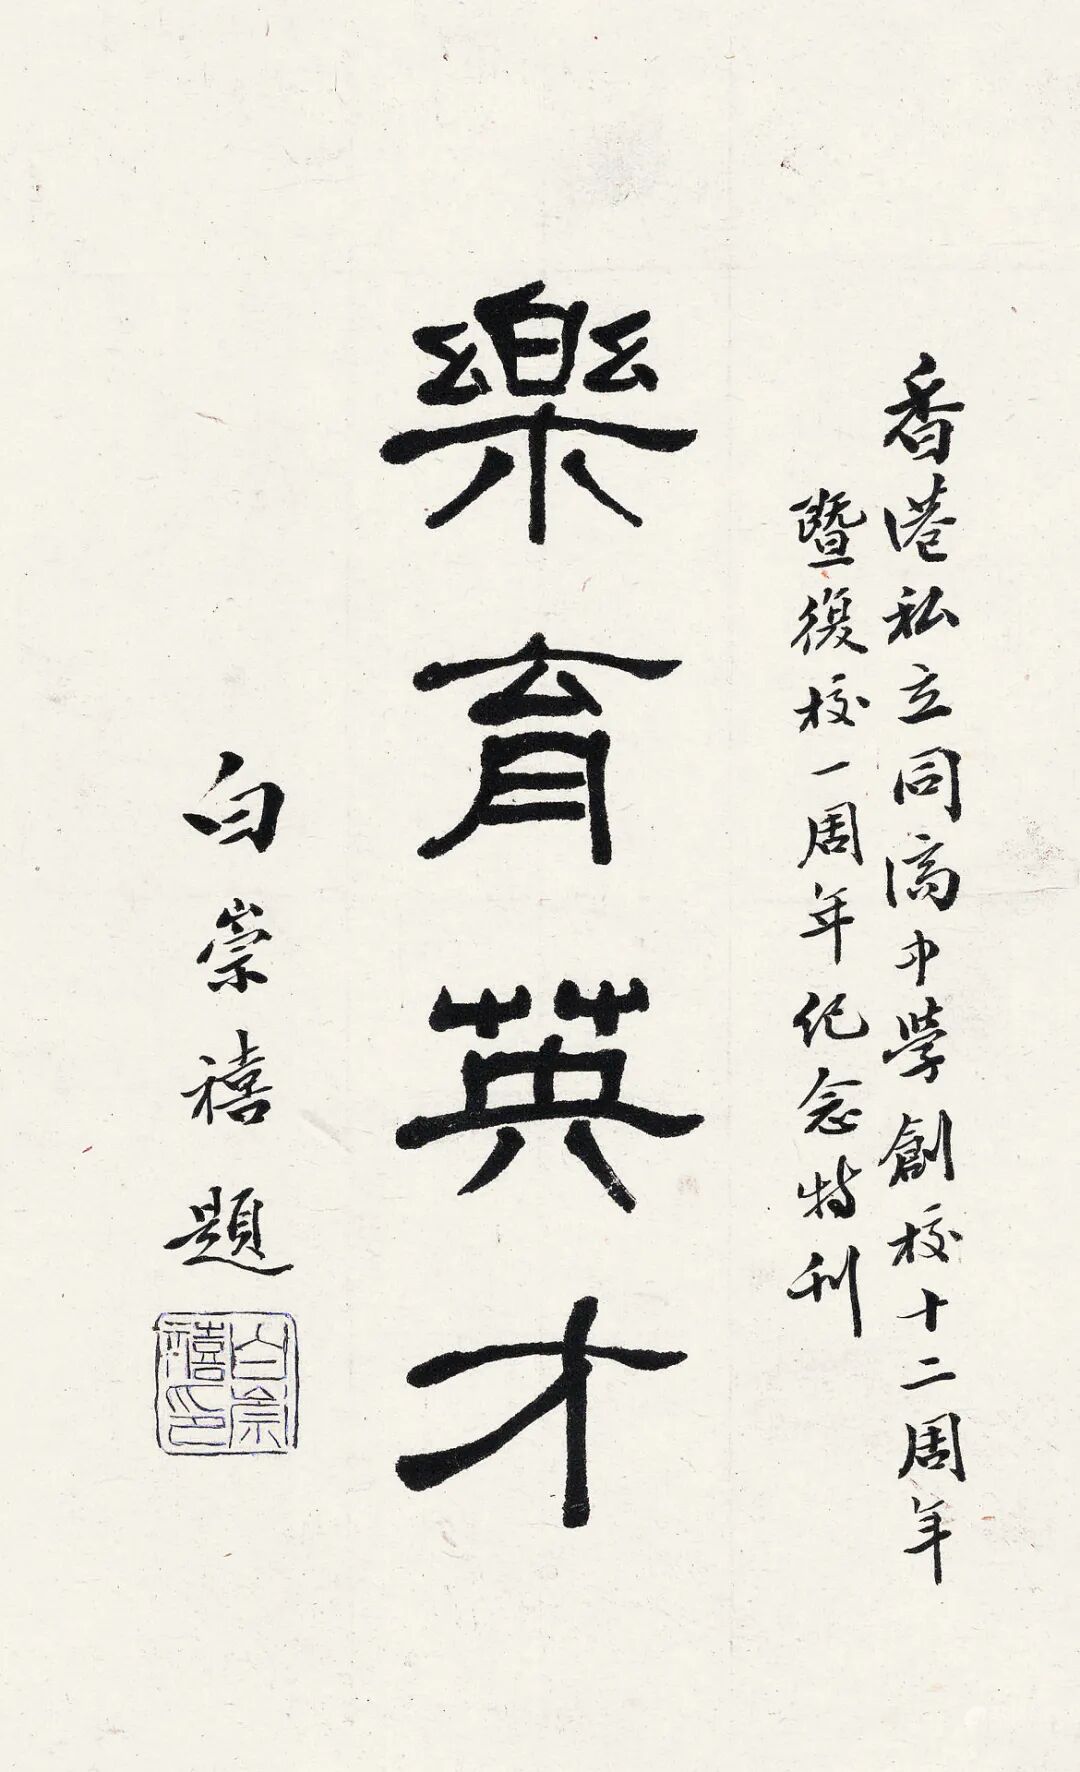 香港私立同濟中學創校十二周年
暨復校一周年紀念特刊
樂育英才
白崇禧題
白崇禧印